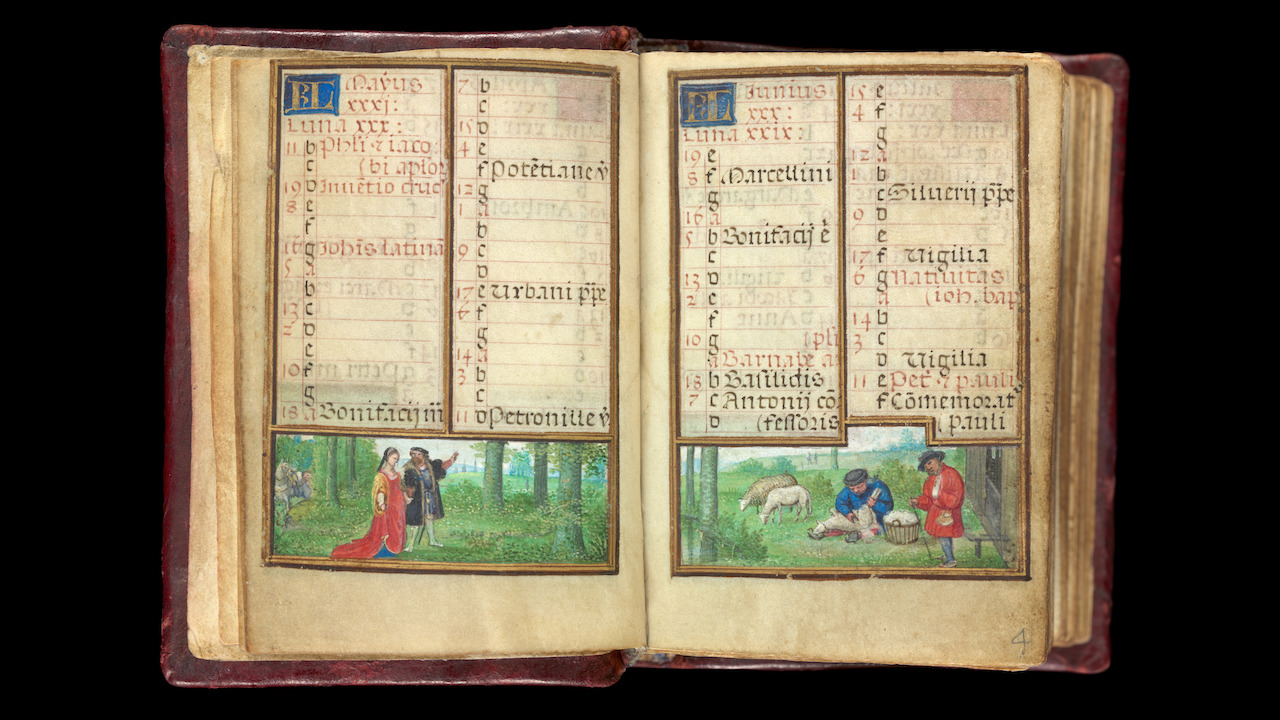 KL Mayus
xxxj:
Luna xxx:
11 b Phli ⁊ iaco
c (bi aplor
19 d Inuẽtio cruc
8 e
f
16 g Johis latinã
5 a
b
13 c
2 d
e
10 f
g
18 a Bonifacij m̃
7 b
c
15 d
4 e
f Potẽtiane v̾
12 g
1 a
b
9 c
d
17 e Urbani p̃pe
6 f
g
14 a
3 b
c
11 d Petronille v̾
KL Iunius
xxx:
Luna xxix:
19 e
8 f Marcellini
g
16 a
5 b Bonifacij ẽ
c
13 d
2 e
f
10 g (pli
a Barnabe a
18 b Basilidis
7 c Antonij cõ
d (fessoris
15 e
4 f
g
12 a
1 b
c Siluerij p̃pe
9 d
e
17 f Uigilia
6 g Natiuitas
a (ioh. bap
14 b
3 c
d Uigilia
11 e Pet̃ ⁊ pauli
f Cõmemorat̃
(pauli
4